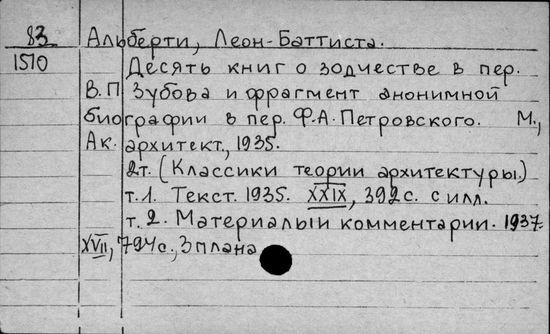 83 Альберти, Леон-Баттиста.
1510 Десять книг о зодчестве в пер.
В.П. Зубова и фрагмент анонимной
биографии в пер. Ф.А. Петровского. М.,
Ак. архитект., 1935.
2т. (Классики теории архитектуры.)
т.1. Текст. 1935. XXIX, 392с. с илл.
т.2. Материалы и комментарии. 1937.
XVII, 794с., 3 плана